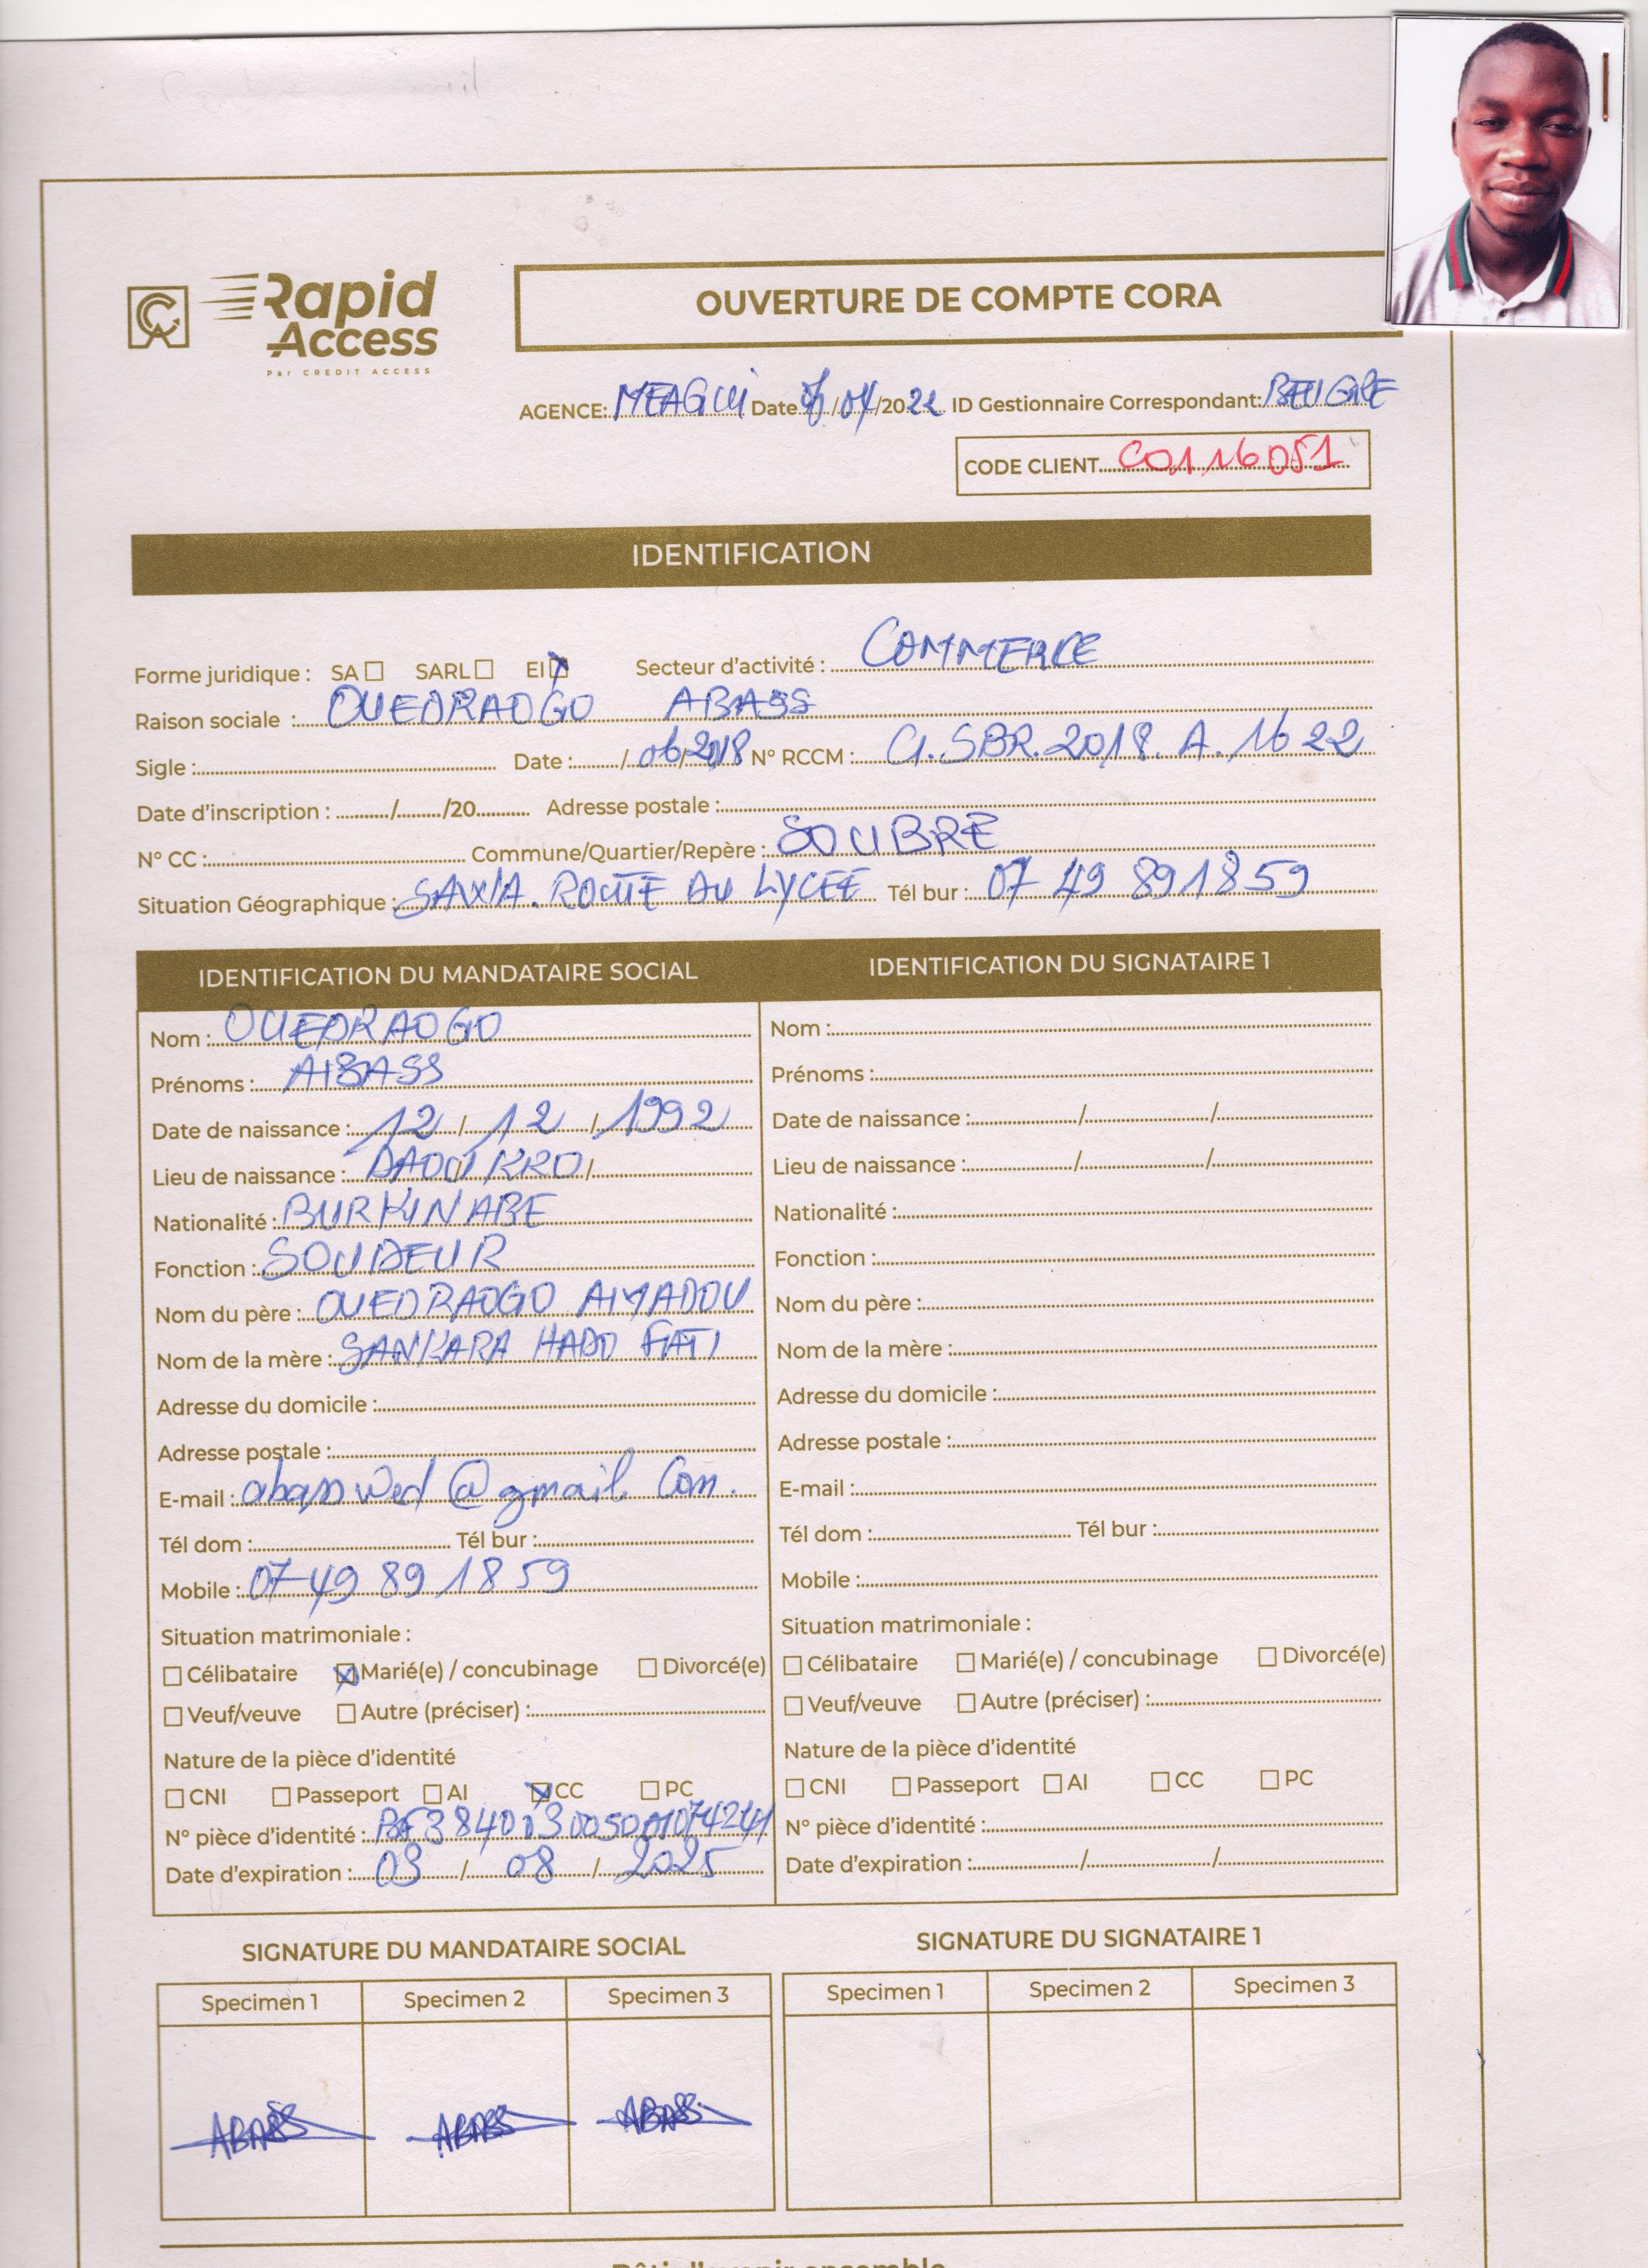 Rapid
Access
Par CREDIT ACCESS
OUVERTURE DE COMPTE CORA
AGENCE: MEAGUI Date /04/2022 ID Gestionnaire Correspondant: BEUGRE
CODE CLIENT C0116051
IDENTIFICATION
Forme juridique : SA SARL EI Secteur d'activité : COMMERCE
Raison sociale : OUEDRAOGO ABASS
Sigle : Date : / 06/2018 N° RCCM : CI.SBR.2018.A.1622
Date d'inscription : / /20 Adresse postale :
N° CC : Commune/Quartier/Repère : SOUBRE
Situation Géographique : ROUTE DU LYCEE Tél bur : 07 49 891859
IDENTIFICATION DU MANDATAIRE SOCIAL
Nom : OUEDRAOGO
Prénoms : ABASS
Date de naissance : 12 / 12 / 1992
Lieu de naissance : DAOUKRO /
Nationalité : BURKINABE
Fonction : SOUDEUR
Nom du père : OUEDRAOGO AMADOU
Nom de la mère : SANKARA HADO FATI
Adresse du domicile :
Adresse postale :
E-mail : abasswed@gmail.Com.
Tél dom : Tél bur :
Mobile : 07 49 89 18 59
Situation matrimoniale :
Célibataire Marié(e) / concubinage Divorcé(e)
Veuf/veuve Autre (préciser) :
Nature de la pièce d'identité
CNI Passeport AI CC PC
N° pièce d'identité :
Date d'expiration : 03 / 08 / 2025
IDENTIFICATION DU SIGNATAIRE 1
Nom :
Prénoms :
Date de naissance : / /
Lieu de naissance : / /
Nationalité :
Fonction :
Nom du père :
Nom de la mère :
Adresse du domicile :
Adresse postale :
E-mail :
Tél dom : Tél bur :
Mobile :
Situation matrimoniale :
Célibataire Marié(e) / concubinage Divorcé(e)
Veuf/veuve Autre (préciser) :
Nature de la pièce d'identité
CNI Passeport AI CC PC
N° pièce d'identité :
Date d'expiration : / /
SIGNATURE DU MANDATAIRE SOCIAL
Specimen 1 Specimen 2 Specimen 3
ABASS ABASS ABASS
SIGNATURE DU SIGNATAIRE 1
Specimen 1 Specimen 2 Specimen 3